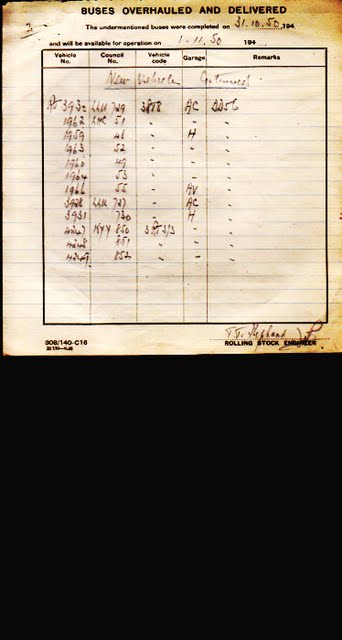 2
BUSES OVERHAULED AND DELIVERED
The undermentioned buses were completed on 31.10.50. 194
and will be available for operation on 1.11.50 194
Vehicle No. Council No. Vehicle code Garage Remarks
New Vehicles Continued
RT 3930 LLU 729 3RT8 AC DD56
1962 LUC 51 " " "
1959 48 " H "
1963 52 " - "
1960 49 " - "
1964 53 " - "
1966 55 " AV "
3928 LLU 727 " AC "
3931 730 " H "
4247 KYY 850 3RT3/3 - "
4248 851 " - "
4249 852 " - "
308/140-C16
ROLLING STOCK ENGINEER